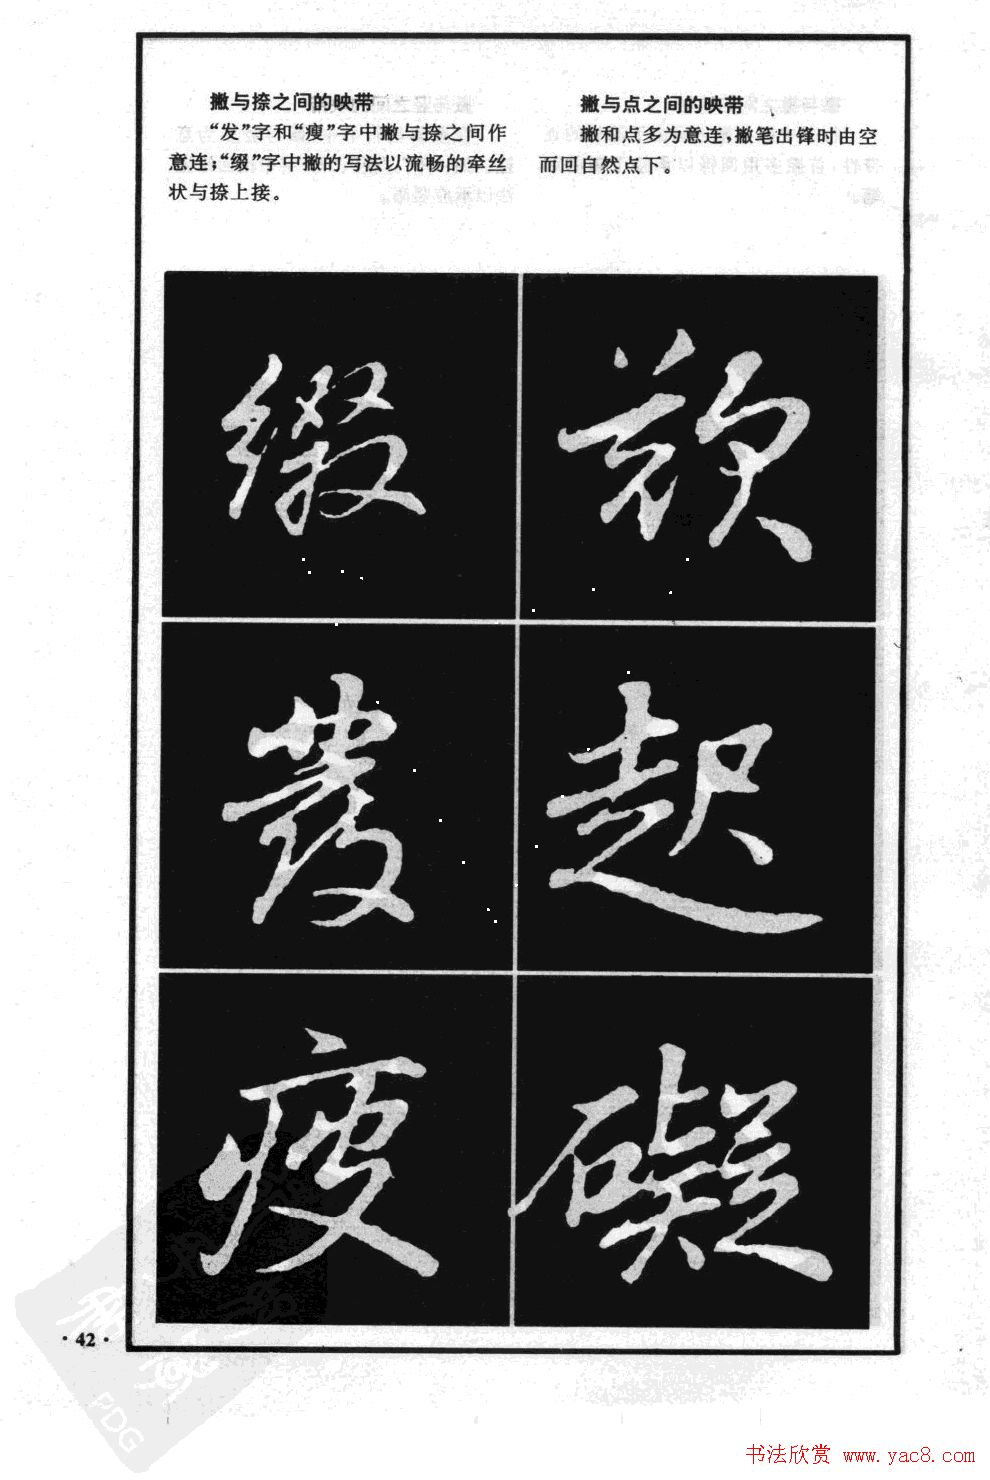 撇与捺之间的映带
“发”字和“瘦”字中撇与捺之间作
意连；“缀”字中撇的写法以流畅的牵丝
状与捺上接。
撇与点之间的映带
撇和点多为意连，撇笔出锋时由空
而回自然点下。
缀
欵
發
起
瘦
礙
·42·
PDG
书法欣赏 www.yac8.com